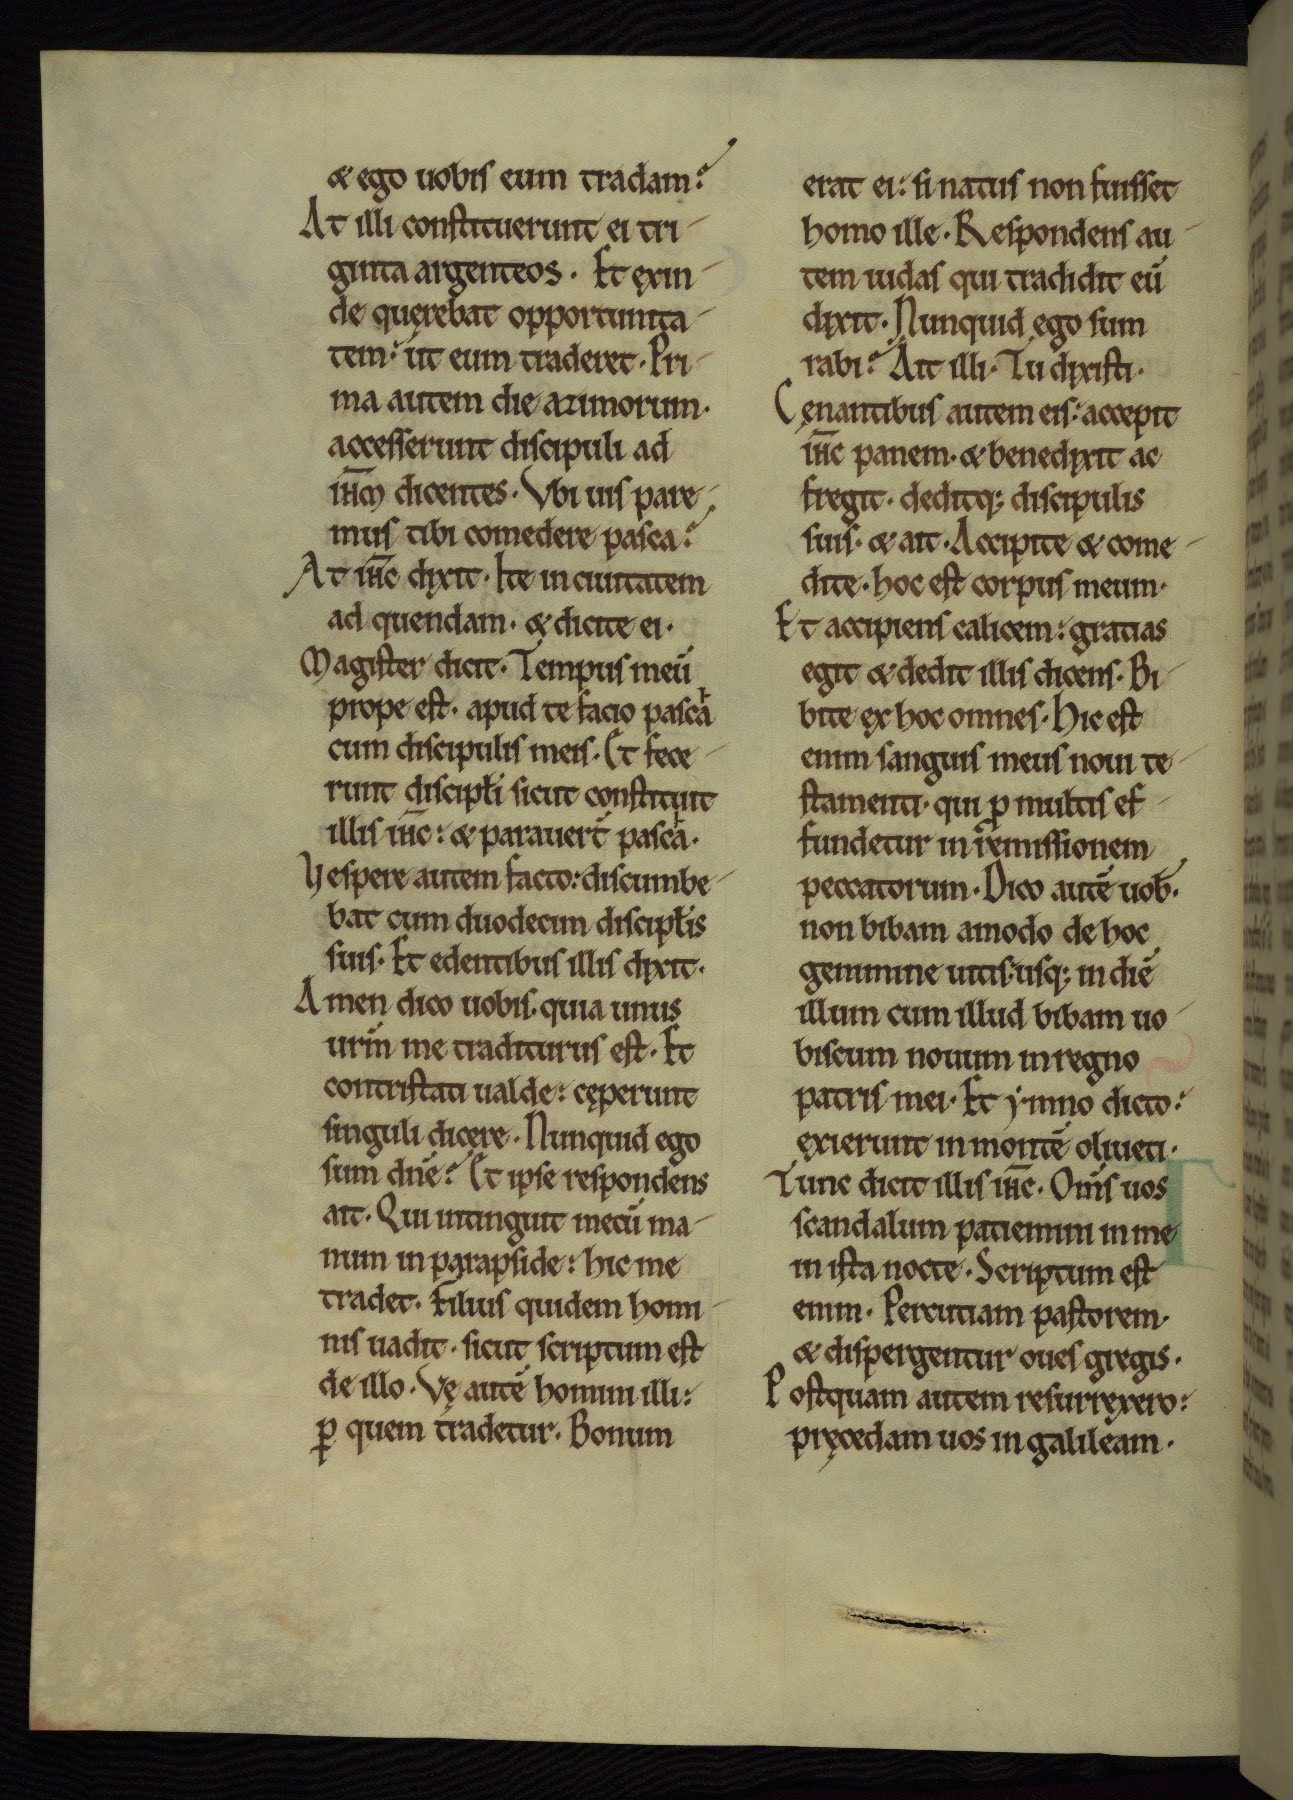 & ego uobis eum tradam?
At illi constituerunt ei tri-
ginta argenteos. Et exin-
de querebat opportunita-
tem: ut eum traderet. Pri-
ma autem die azimorum.
accesserunt discipuli ad
ih̅m dicentes. Vbi uis pare-
mus tibi comedere pasca?
At ih̅c dixit. Ite in ciuitatem
ad quendam. & dicite ei.
Magister dicit. Tempus meū
prope est. apud te facio pascā
cum discipulis meis. Et fece-
runt discipłi sicut constituit
illis ih̅c: & parauer̄t pascā.
Vespere autem facto: discumbe-
bat cum duodecim discipłis
suis. Et edentibus illis dixit.
Amen dico uobis. quia unus
ur̄m me traditurus est. Et
contristati ualde: cęperunt
singuli dicere. Nunquid ego
sum dn̄e? Et ipse respondens
ait. Qui intinguit mecū ma-
num in parapside: hic me
tradet. Filius quidem homi-
nis uadit. sicut scriptum est
de illo. Vę autē homini illi:
ꝑ quem tradetur. Bonum
erat ei: si natus non fuisset
homo ille. Respondens au-
tem iudas qui tradidit eū
dixit. Nunquid ego sum
rabi? Ait illi. Tu dixisti.
Cenantibus autem eis: accepit
ih̅c panem. & benedixit ac
fregit. deditq; discipulis
suis. & ait. Accipite & come-
dite. hoc est corpus meum.
Et accipiens calicem: gratias
egit & dedit illis dicens. Bi-
bite ex hoc omnes. Hic est
enim sanguis meus noui te-
stamenti. qui ꝓ multis ef-
fundetur in remissionem
peccatorum. Dico autē uob̄.
non bibam amodo de hoc
genimine uitis. usq; in diē
illum cum illud bibam uo-
biscum nouum in regno
patris mei. Et ymno dicto:
exierunt in montē oliueti.
Tunc dicit illis ih̅c. Om̄s uos
scandalum patiemini in me
in ista nocte. Scriptum est
enim. Percutiam pastorem.
& dispergentur oues gregis.
Postquam autem resurrexero:
pręcedam uos in galileam.